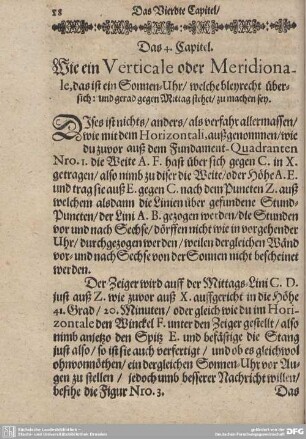 58 Das Vierdte Capitel/
Das 4. Capitel.
Wie ein Verticale oder Meridiona-
le, das ist ein Sonnen-Uhr/ welche bleyrecht über-
sich: und gerad gegen Mittag stehet/ zu machen sey.
DIses ist nichts/ anders/ als verfahr allermassen/
wie mit dem Horizontali, außgenommen/ wie
du zuvor auß dem Fundament-Quadranten
Nro. 1. die Weite A. F. hast über sich gegen C. in X.
getragen/ also nimb zu diser die Weite/ oder Höhe A. E.
und trag sie auß E. gegen C. nach dem Puncten Z. auß
welchem alsdann die Linien über gefundene Stund-
Puncten/ der Lini A. B. gezogen werden/ die Stunden
vor und nach Sechse/ dörffen nicht wie in vorgehender
Uhr/ durchgezogen werden/ weilen dergleichen Wänd
vor: und nach Sechse von der Sonnen nicht bescheinet
werden.
Der Zeiger wird auff der Mittags-Lini C. D.
just auß Z. wie zuvor auß X. auffgericht in die Höhe
41. Grad/ 20. Minuten/ oder gleich wie du im Hori-
zontale den Winckel F. unter den Zeiger gestellt/ also
nimb anjetzo den Spitz E. und befästige die Stang
just also/ so ist sie auch verfertigt/ und ob es gleichwol
ohnvonnöthen/ ein dergleichen Sonnen-Uhr vor Au-
gen zu stellen/ jedoch umb besserer Nachricht willen/
besihe die Figur Nro. 3.
Das